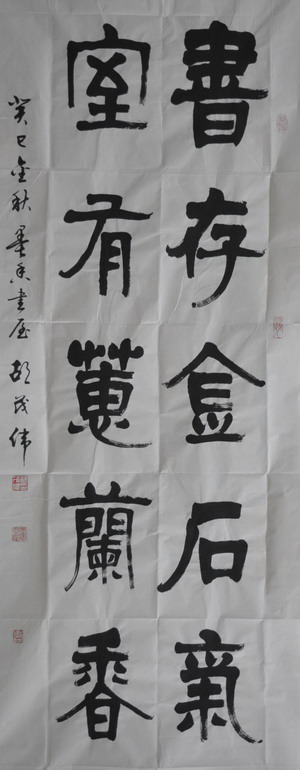 書存金石氣
室有蕙蘭香
癸巳金秋墨香書屋胡茂偉